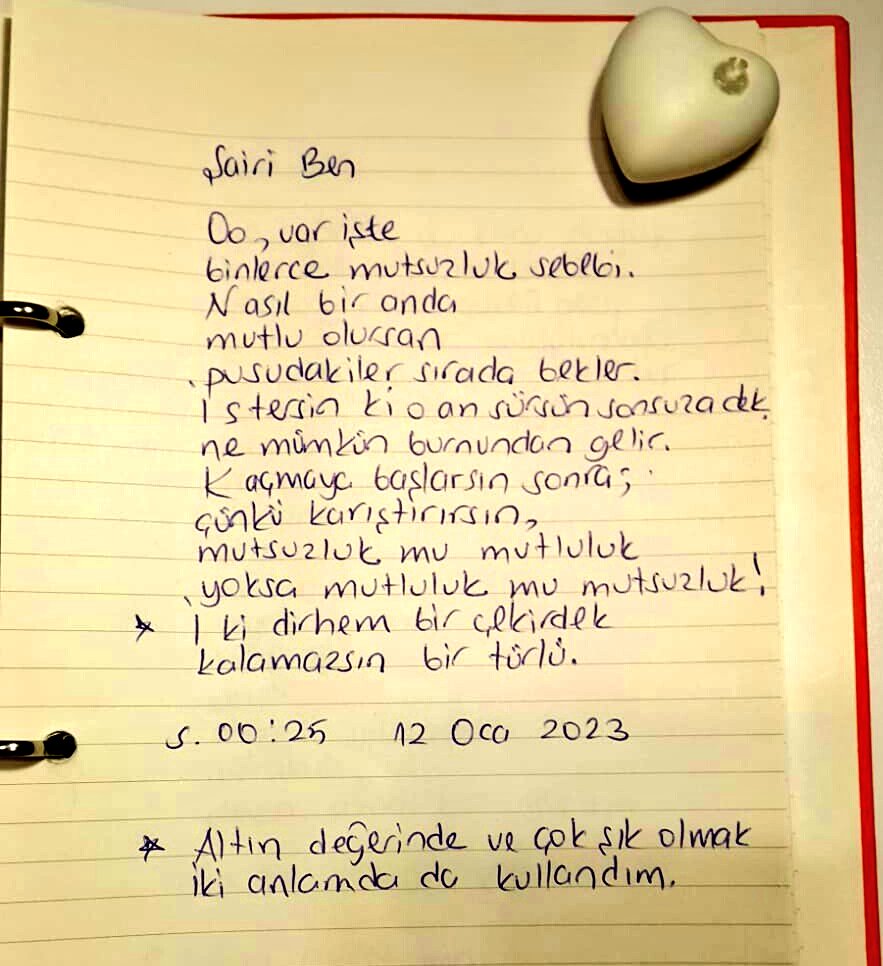 Şairi Ben
Oo, var işte
binlerce mutsuzluk sebebi.
Nasıl bir anda
mutlu olursan
pusudakiler sırada bekler.
İstersin ki o an sürsün sonsuzadek,
ne mümkün burnundan gelir.
Kaçmaya başlarsın sonra;
çünkü karıştırırsın,
mutsuzluk mu mutluluk
yoksa mutluluk mu mutsuzluk!
* İki dirhem bir çekirdek
kalamazsın bir türlü.
s. 00:25 12 Oca 2023
* Altın değerinde ve çok şık olmak
iki anlamda da kullandım.